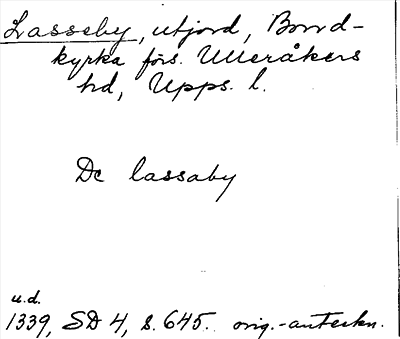 Lasseby, utjord, Bond-
kyrka förs. Ulleråkers
hd, Upps. l.
De lassaby
u.d.
1339, SD 4, s. 645. orig.-anteckn.